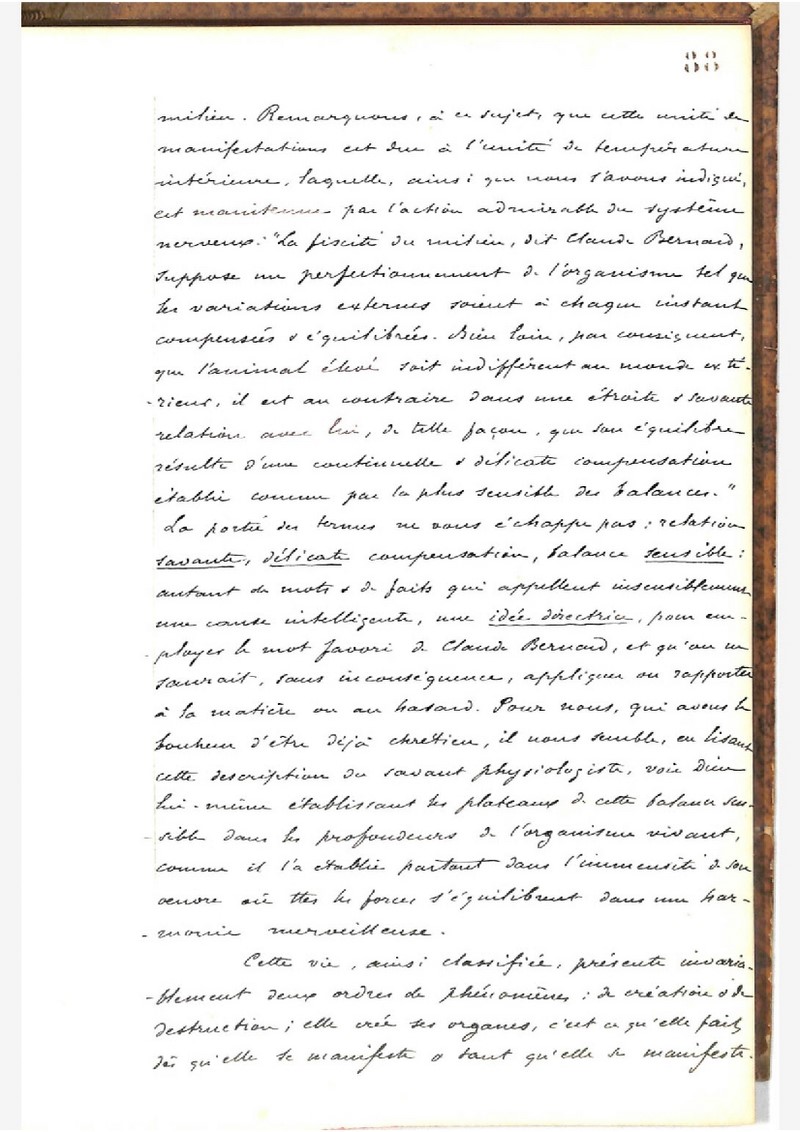 88
milieu. Remarquons, à ce sujet, que cette unité de
manifestations est due à l'unité de température
intérieure, laquelle, ainsi que nous l'avons indiqué,
est maintenue par l'action admirable du système
nerveux: "La fixité du milieu, dit Claude Bernard,
suppose un perfectionnement de l'organisme tel que
les variations externes soient à chaque instant
compensées & équilibrées. Bien loin, par conséquent,
que l'animal élevé soit indifférent au monde exté-
-rieur, il est au contraire dans une étroite & savante
relation avec lui, de telle façon, que son équilibre
résulte d'une continuelle & délicate compensation
établie comme par la plus sensible des balances."
La portée des termes ne vous échappe pas: relation
savante, délicate compensation, balance sensible:
autant de mots & de faits qui appellent insensiblement
une cause intelligente, une idée directrice, pour em-
-ployer le mot favori de Claude Bernard, et qu'on ne
saurait, sans inconséquence, appliquer ou rapporter
à la matière ou au hasard. Pour nous, qui avons le
bonheur d'être déjà chrétien, il nous semble, en lisant
cette description du savant physiologiste, voir Dieu
lui-même établissant les plateaux de cette balance sen-
-sible dans les profondeurs de l'organisme vivant,
comme il l'a établie partout dans l'immensité de son
oeuvre où ttes les forces s'équilibrent dans une har-
-monie merveilleuse.
Cette vie, ainsi classifiée, présente invaria-
-blement deux ordres de phénomènes: de création & de
destruction; elle crée ses organes, c'est ce qu'elle fait,
dès qu'elle se manifeste & tant qu'elle se manifeste.